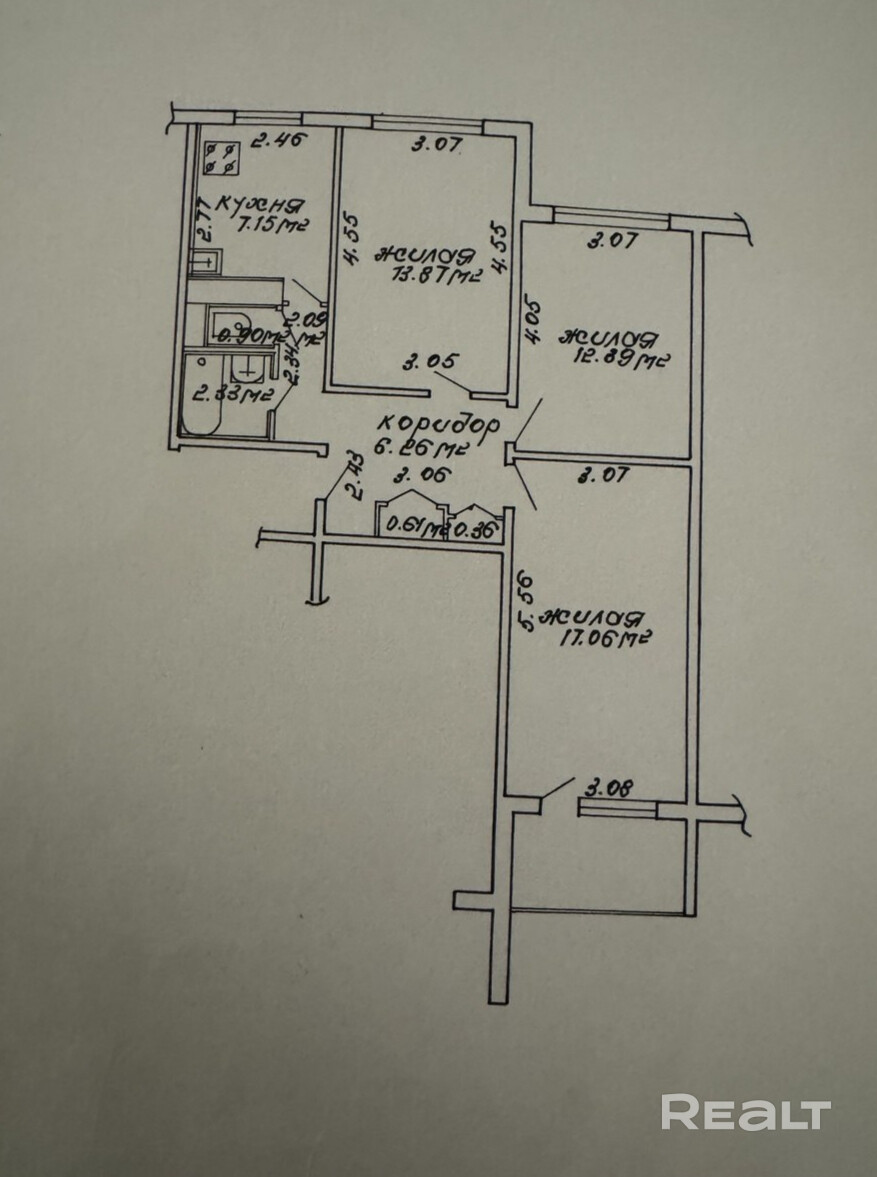 2.46
3.07
кухня
7.15м2
2.77
4.55
4.55
жилая
13.87м2
3.07
4.05
жилая
12.89м2
0.90м2
2.09
м2
2.34
2.33м2
3.05
коридор
6.26м2
2.43
3.06
3.07
0.61м2
0.36
5.56
жилая
17.06м2
3.08
REALT